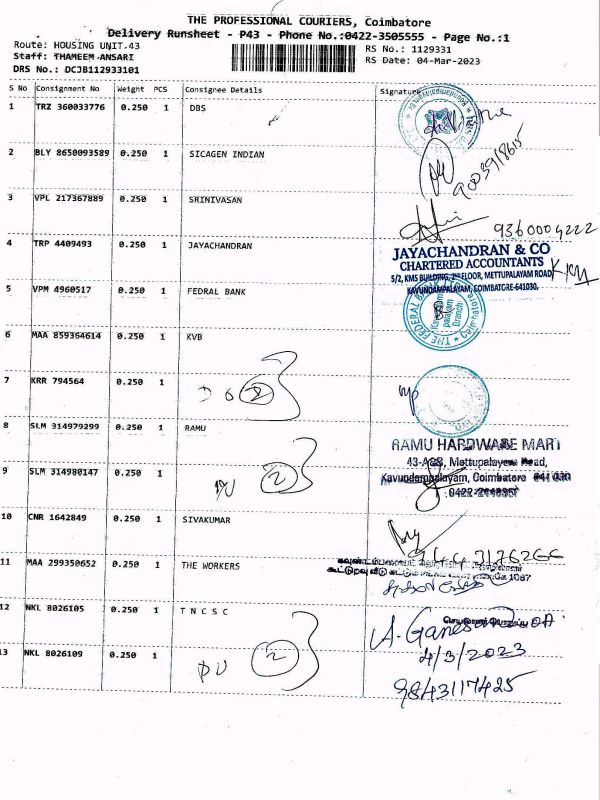 THE PROFESSIONAL COURIERS, Coimbatore
Delivery Runsheet - P43 - Phone No.:0422-3505555 - Page No.:1
Route: HOUSING UNIT.43
RS No.: 1129331
Staff: THAMEEM ANSARI
RS Date: 04-Mar-2023
DRS No.: DCJB112933101
S No Consignment No Weight PCS Consignee Details Signature
1 TRZ 360033776 0.250 1 DBS
2 BLY 8650093589 0.250 1 SICAGEN INDIAN
3 VPL 217367889 0.250 1 SRINIVASAN
9360004222
4 TRP 4409493 0.250 1 JAYACHANDRAN
JAYACHANDRAN & CO
CHARTERED ACCOUNTANTS
5/2, KMS BUILDING, 2nd FLOOR, METTUPALAYAM ROAD,
KAVUNDAMPALAYAM, COIMBATORE-641030.
5 VPM 4960517 0.250 1 FEDRAL BANK
THE FEDERAL BANK
Coimbatore
Branch
6 MAA 859364614 0.250 1 KVB
7 KRR 794564 0.250 1
2
8 SLM 314979299 0.250 1 RAMU
RAMU HARDWARE MART
Mettupalayam Road,
Kavundampalayam, Coimbatore
9 SLM 314980147 0.250 1
DU 2
10 CNR 1642849 0.250 1 SIVAKUMAR
11 MAA 299350652 0.250 1 THE WORKERS
12 NKL 8026105 0.250 1 T N C S C
A. Ganesan
4/3/2023
13 NKL 8026109 0.250 1
DU 2
9843117425